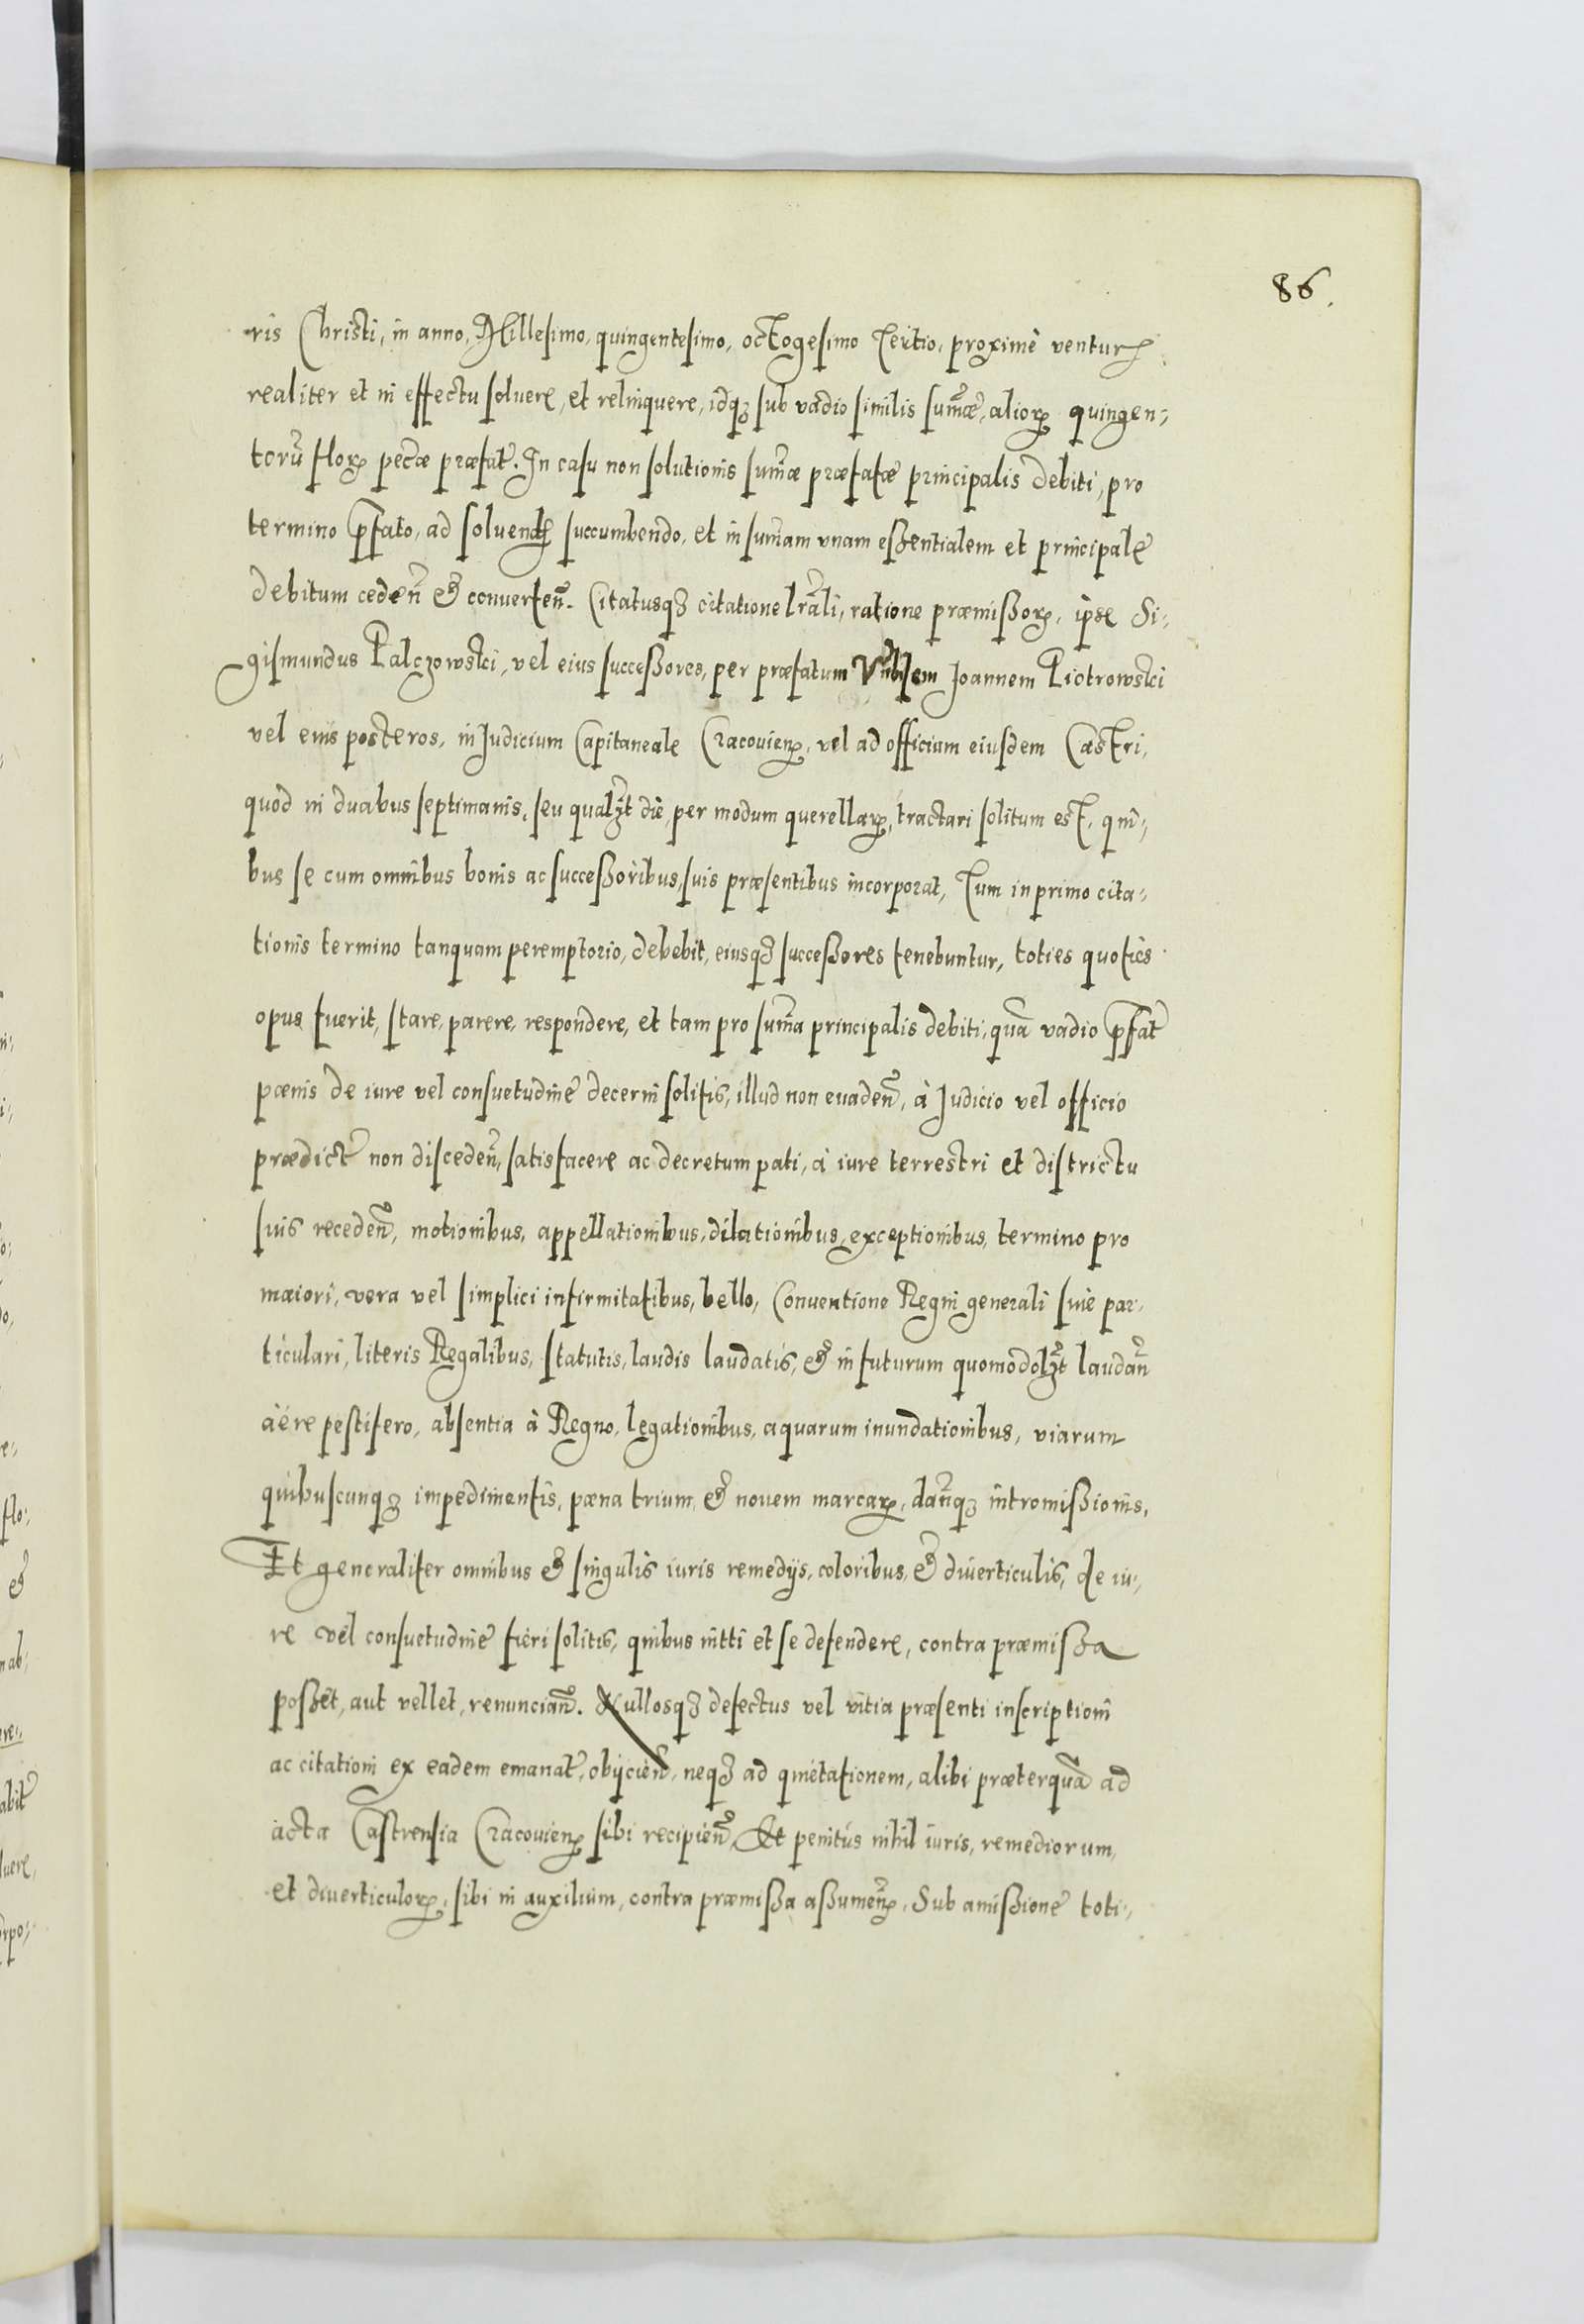 86.
ris Christi, in anno, Millesimo, quingentesimo, octogesimo Tertio, proximè ventur̃
realiter et in effectu soluere, et relinquere, idq; sub vadio similis sum̃æ, aliorꝝ quingen-
torũ florꝝ pec̃æ præfat̃. In casu non solutionis sum̃æ præfatæ principalis debiti, pro
termino p̃fato, ad soluend̃ succumbendo, et in sum̃am vnam eßentialem et principalẽ
debitum ceden̄ & conuerten̄. Citatusq; citatione lr̃ali, ratione præmißorꝝ, ipse Si-
gismundus Palczowski, vel eius succeßores, per præfatum Joannem Piotrowski
vel eius posteros, in Judicium Capitaneale Cracouien̄, vel ad officium eiusdem Castri,
quod in duabus septimanis, seu qualz̃t die, per modum querellarꝝ, tractari solitum est, qui-
bus se cum omnibus bonis ac succeßoribus, suis præsentibus incorporat, Tum in primo cita-
tionis termino tanquam peremptorio, debebit, eiusq; succeßores tenebuntur, toties quoties
opus fuerit, stare, parere, respondere, et tam pro sum̃a principalis debiti, quã vadio p̃fat̃
pænis de iure vel consuetudine decerni solitis, illud non euaden̄, à Judicio vel officio
prædict̃ non disceden̄, satisfacere ac decretum pati, à iure terrestri et districtu
suis receden̄, motionibus, appellationibus, dilationibus, exceptionibus, termino pro
maiori, vera vel simplici infirmitatibus, bello, Conuentione Regni generali siue par-
ticulari, literis Regalibus, statutis, laudis laudatis, & in futurum quomodolz̃t laudan̄
aëre pestifero, absentia à Regno, legationibus, aquarum inundationibus, viarum
quibuscunq; impedimentis, pæna trium & nouem marcarꝝ, dan̄q; intromißionis,
Et generaliter omnibus & singulis iuris remedijs, coloribus, & diuerticulis, de iu-
re vel consuetudine fieri solitis, quibus niti et se defendere, contra præmißa
poßet, aut vellet, renuncian̄. Nullosq; defectus vel vitia præsenti inscriptioni
ac citationi ex eadem emanat̃, obijcien̄, neq; ad quietationem, alibi præterquã ad
acta Castrensia Cracouien̄ sibi recipien̄, Et penitùs nihil iuris, remediorum,
et diuerticulorꝝ, sibi in auxilium, contra præmißa aßumen̄, Sub amißione toti-